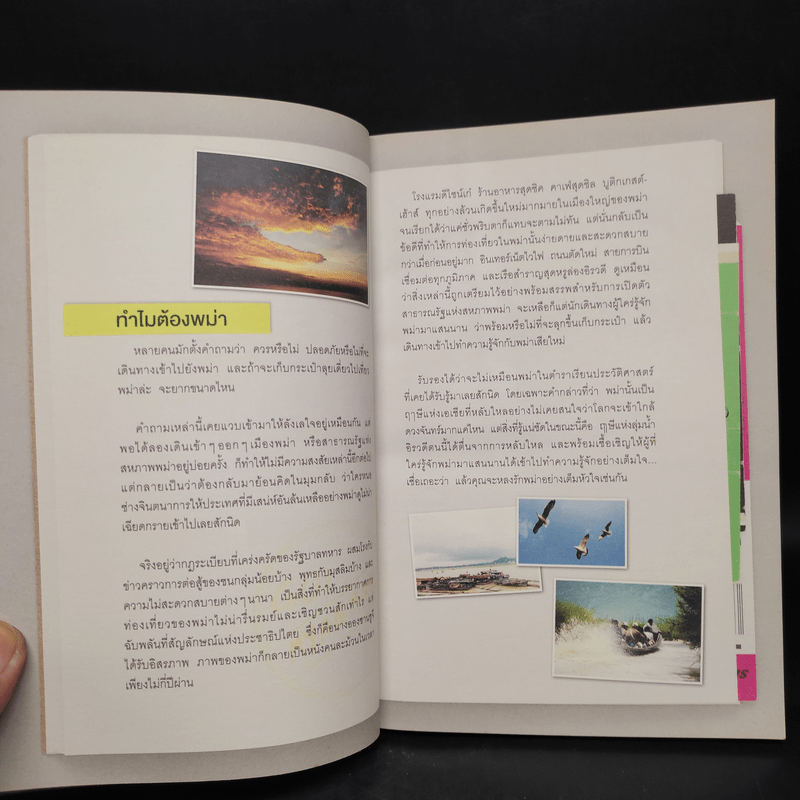 ทำไมต้องพม่า
หลายคนมักตั้งคำถามว่า ควรหรือไม่ ปลอดภัยหรือไม่ที่จะ
เดินทางเข้าไปยังพม่า และถ้าจะเก็บกระเป๋าลุยเดี่ยวไปเที่ยว
พม่าล่ะ จะยากขนาดไหน
คำถามเหล่านี้เคยแวบเข้ามาให้ลังเลใจอยู่เหมือนกัน แต่
พอได้ลองเดินเข้าๆ ออกๆ เมืองพม่า หรือสาธารณรัฐแห่ง
สหภาพพม่าอยู่บ่อยครั้ง ก็ทำให้ไม่มีความสงสัยเหล่านี้อีกต่อไป
แต่กลายเป็นว่าต้องกลับมาย้อนคิดในมุมกลับ ว่าใครหนอ
ช่างจินตนาการให้ประเทศที่มีเสน่ห์อันล้นเหลืออย่างพม่าดูไม่น่า
เฉียดกรายเข้าไปเลยสักนิด
จริงอยู่ว่ากฎระเบียบที่เคร่งครัดของรัฐบาลทหาร ผสมโรงกับ
ข่าวคราวการต่อสู้ของชนกลุ่มน้อยบ้าง พุทธกับมุสลิมบ้าง และ
ความไม่สะดวกสบายต่างๆ นานา เป็นสิ่งที่ทำให้บรรยากาศการ
ท่องเที่ยวของพม่าไม่น่ารื่นรมย์และเชิญชวนสักเท่าไร แต่
ฉับพลันที่สัญลักษณ์แห่งประชาธิปไตย ซึ่งก็คือนางอองซานซูจี
ได้รับอิสรภาพ ภาพของพม่าก็กลายเป็นหนังคนละม้วนในเวลา
เพียงไม่กี่ปีผ่าน
โรงแรมดีไซน์เก๋ ร้านอาหารสุดชิค คาเฟ่สุดชิล บูติกเกสต์-
เฮ้าส์ ทุกอย่างล้วนเกิดขึ้นใหม่มากมายในเมืองใหญ่ของพม่า
จนเรียกได้ว่าแค่ชั่วพริบตาก็แทบจะตามไม่ทัน แต่นั่นกลับเป็น
ข้อดีที่ทำให้การท่องเที่ยวในพม่านั้นง่ายดายและสะดวกสบาย
กว่าเมื่อก่อนอยู่มาก อินเทอร์เน็ตไวไฟ ถนนตัดใหม่ สายการบิน
เชื่อมต่อทุกภูมิภาค และเรือสำราญสุดหรูล่องอิรวดี ดูเหมือน
ว่าสิ่งเหล่านี้ถูกเตรียมไว้อย่างพร้อมสรรพสำหรับการเปิดตัว
สาธารณรัฐแห่งสหภาพพม่า จะเหลือก็แต่นักเดินทางผู้ใคร่รู้จัก
พม่ามาแสนนาน ว่าพร้อมหรือไม่ที่จะลุกขึ้นเก็บกระเป๋า แล้ว
เดินทางเข้าไปทำความรู้จักกับพม่าเสียใหม่
รับรองได้ว่าจะไม่เหมือนพม่าในตำราเรียนประวัติศาสตร์
ที่เคยได้รับรู้มาเลยสักนิด โดยเฉพาะคำกล่าวที่ว่า พม่านั้นเป็น
ฤๅษีแห่งเอเชียที่หลับใหลอย่างไม่เคยสนใจว่าโลกจะเข้าใกล้
ดวงจันทร์มากแค่ไหน แต่สิ่งที่รู้แน่ชัดในขณะนี้คือ ฤๅษีแห่งลุ่มน้ำ
อิรวดีตนนี้ได้ตื่นจากการหลับใหล และพร้อมเชื้อเชิญให้ผู้ที่
ใคร่รู้จักพม่ามาแสนนานได้เข้าไปทำความรู้จักอย่างเต็มใจ...
เชื่อเถอะว่า แล้วคุณจะหลงรักพม่าอย่างเต็มหัวใจเช่นกัน